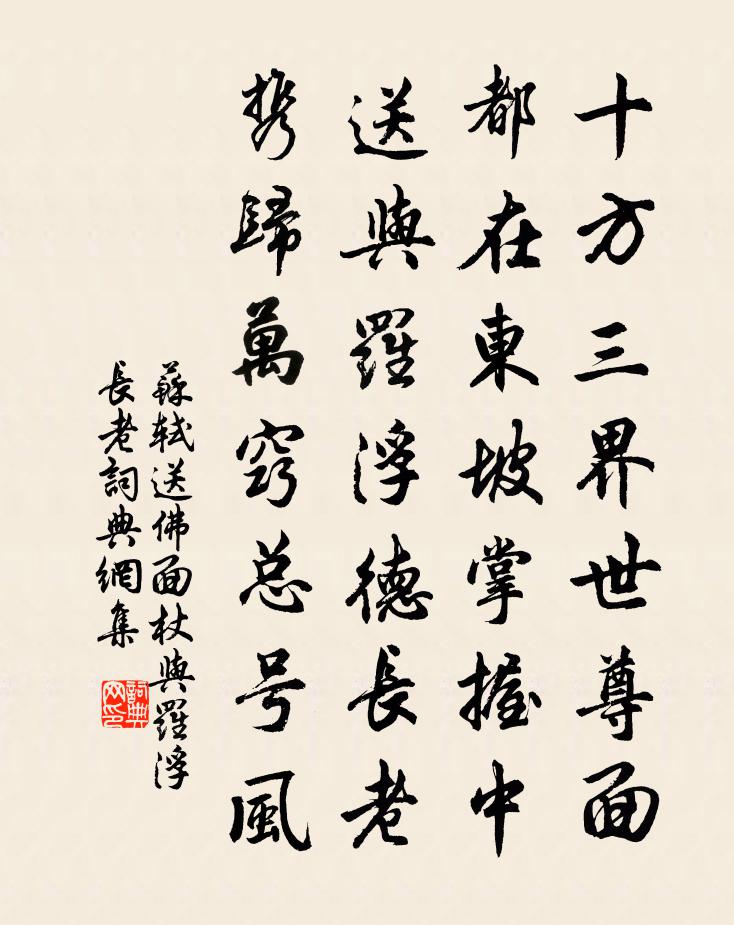 十方三界世尊面
都在東坡掌握中
送與羅浮德長老
携歸萬竅总号風
蘇軾送佛面杖與羅浮
長老詞典網集
詞典网印